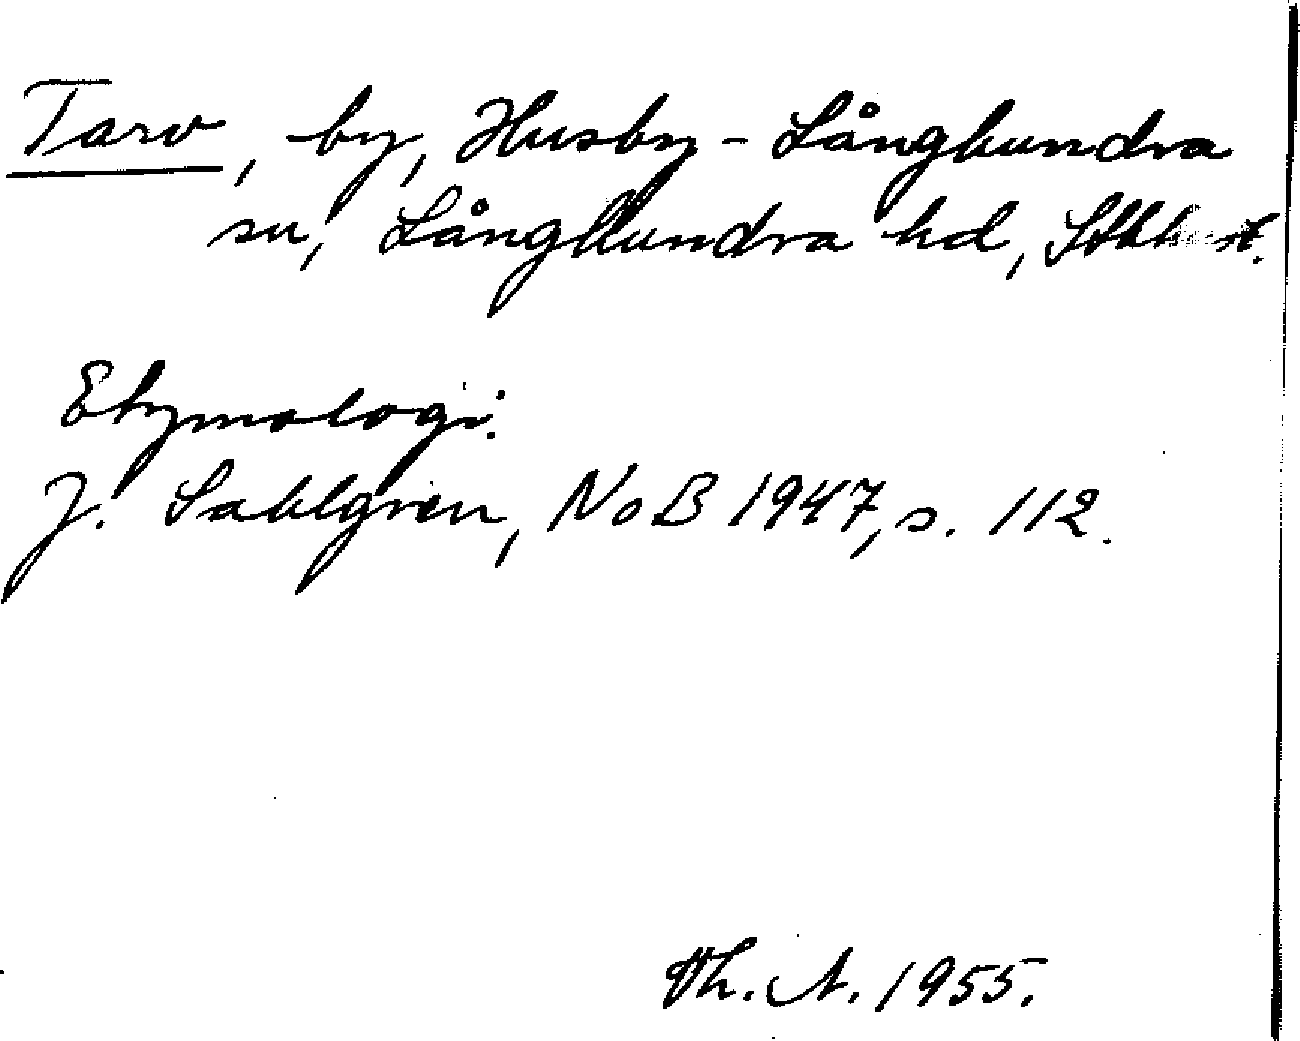 Tarv, by, Husby-Långhundra
sn, Långhundra hd,
Etymologi.
J. Sahlgren, NoB 1947, s. 112.
Th. A. 1955.